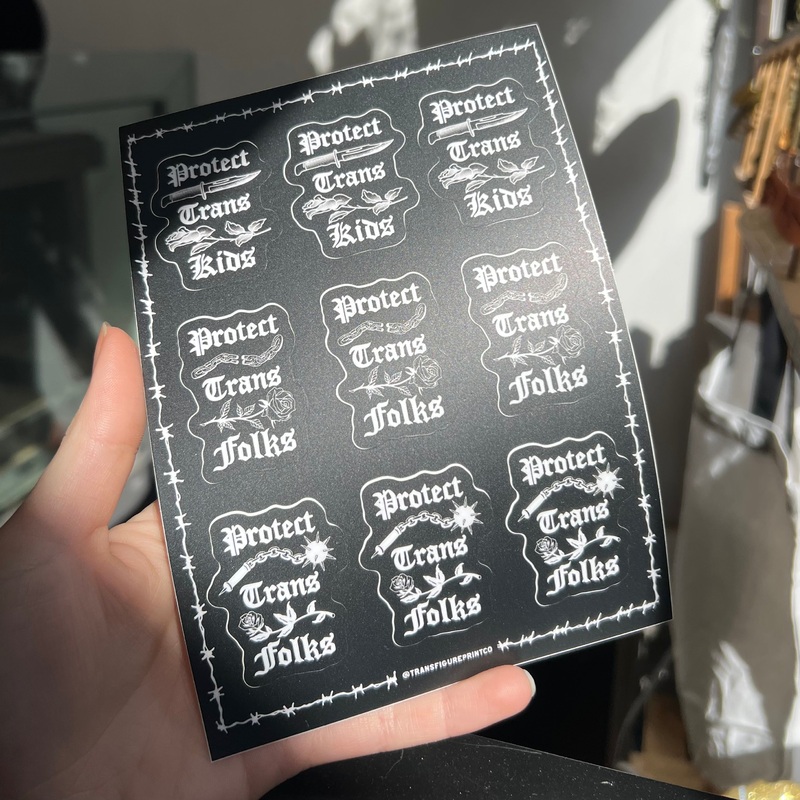 Protect
Trans
Kids
Protect
Trans
Kids
Protect
Trans
Kids
Protect
Trans
Folks
Protect
Trans
Folks
Protect
Trans
Folks
Protect
Trans
Folks
Protect
Trans
Folks
Protect
Trans
Folks
@TRANSFIGUREPRINTCO